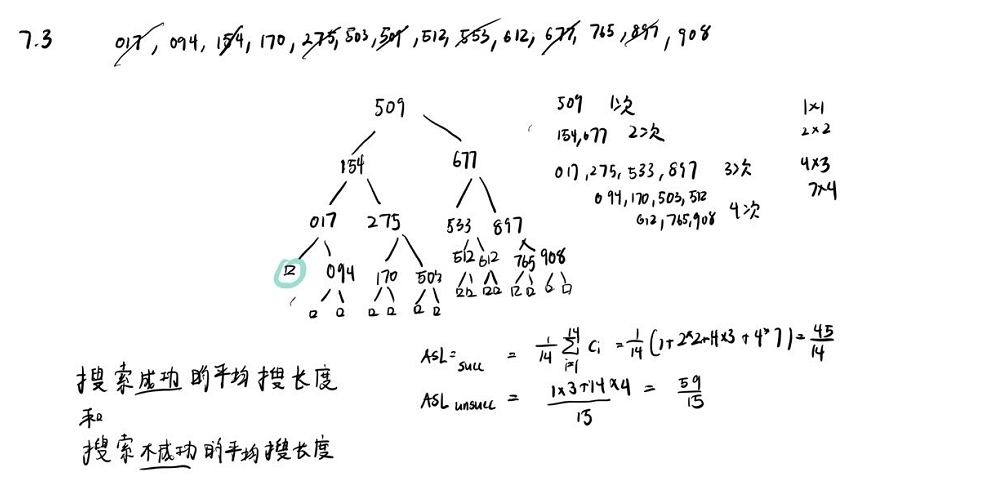 7.3 017, 094, 154, 170, 275, 503, 509, 512, 553, 612, 677, 765, 897, 908
509
154 677
017 275 533 897
094 170 503 512 612 765 908
509 1次 1×1
154,677 2次 2×2
017,275,533,897 3次 4×3
094,170,503,512 7×4
612,765,908 4次
ASL= succ = 1/14 14∑i=1 Ci = 1/14 (1+2×2+4×3+4×7) = 45/14
ASL unsucc = 1×3+14×4/15 = 59/15
搜索成功的平均搜长度
和
搜索不成功的平均搜长度